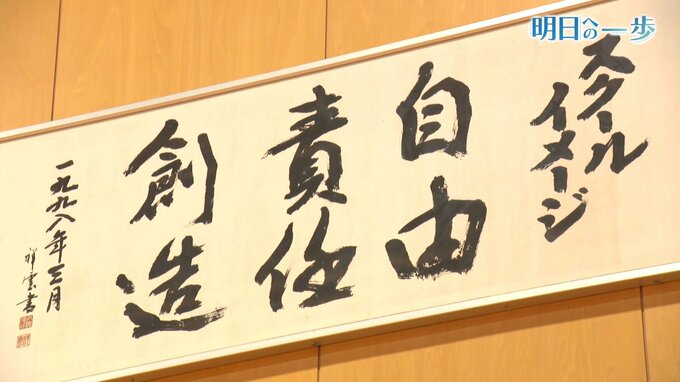 明日への一歩
スクール
イメージ
自由
責任
創造
一九九八年三月
祥雲書